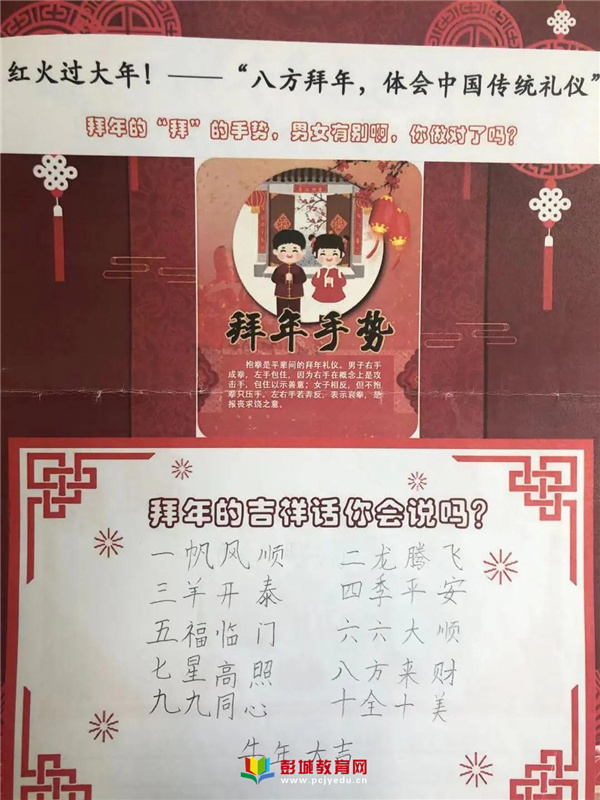 红火过大年！——“八方拜年，体会中国传统礼仪”
拜年的“拜”的手势，男女有别啊，你做对了吗？
拜年手势
抱拳是平辈间的拜年礼仪。男子右手
成拳，左手包住，因为右手在概念上是攻
击手，包住以示善意；女子相反，但不抱
拳只压手。左右手若弄反，表示哀拳，是
报丧求饶之意。
拜年的吉祥话你会说吗？
一帆风顺 二龙腾飞
三羊开泰 四季平安
五福临门 六六大顺
七星高照 八方来财
九九同心 十全十美
牛年大吉
彭城教育网
www.pcjyedu.cn